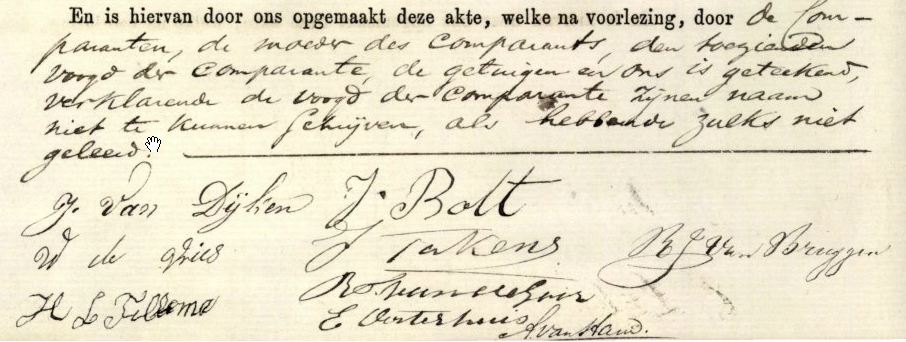 En is hiervan door ons opgemaakt deze akte, welke na voorlezing, door de Com-
paranten, de moeder des comparants, den toezienden
voogd der comparante, de getuigen en ons is geteekend,
verklarende de voogd der comparante zijnen naam
niet te kunnen schrijven, als hebbende zulks niet
geleerd.
J. van Dijken J. Bolt
W de Vries J Takens R J Van Bruggen
H L Fillema
E Oosterhuis